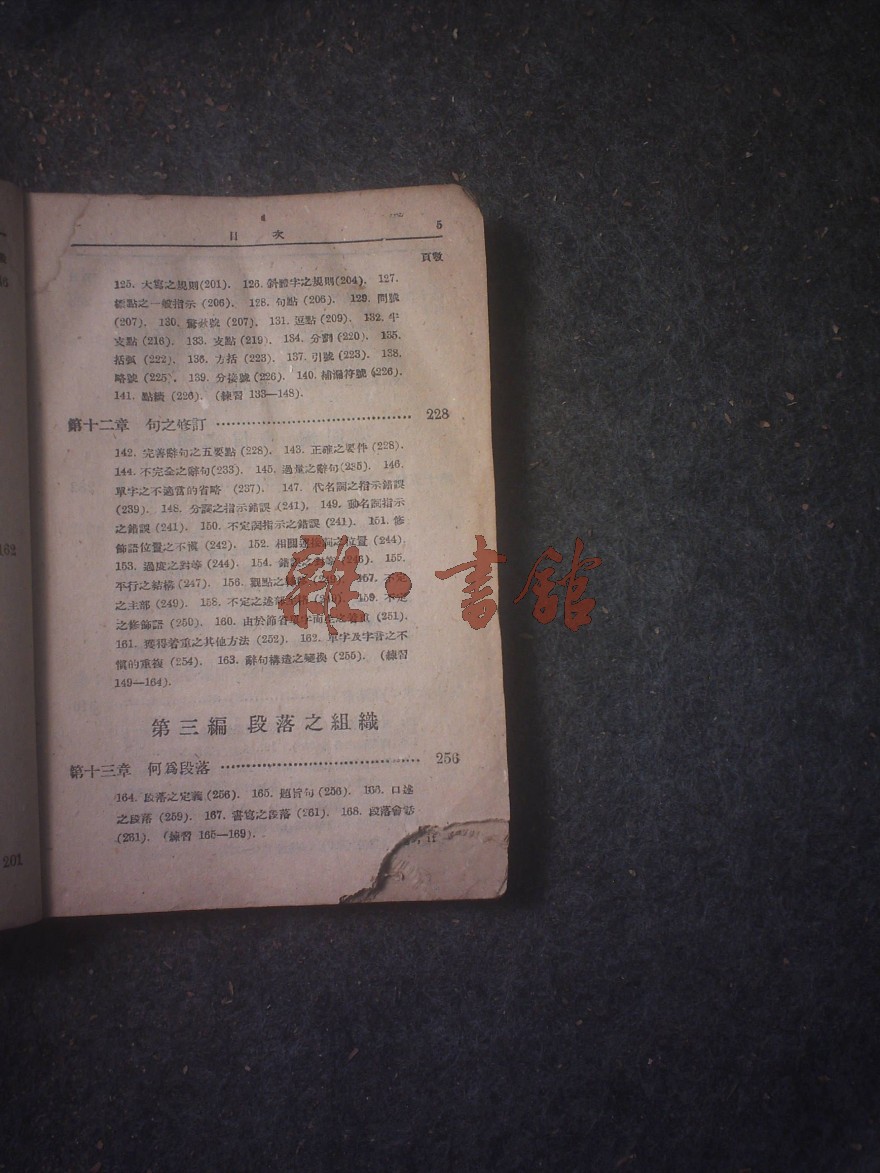 目 次 5
頁數
125. 大寫之規則(201). 126. 斜體字之規則(204). 127.
標點之一般指示 (206). 128. 句點 (206). 129. 問號
(207). 130. 驚歎號 (207). 131. 逗點 (209). 132. 半
支點 (216). 133. 支點 (219). 134. 分劃 (220). 135.
括弧 (222). 136. 方括 (223). 137. 引號 (223). 138.
略號 (225). 139. 分接號 (226). 140. 補漏符號 (226).
141. 點線 (226). (練習 133—148).
第十二章 句之修訂 228
142. 完善辭句之五要點 (228). 143. 正確之要件 (228).
144. 不完全之辭句(233). 145. 過量之辭句(235). 146.
單字之不適當的省略 (237). 147. 代名詞之指示錯誤
(239). 148. 分詞之指示錯誤 (241). 149. 動名詞指示
之錯誤 (241). 150. 不定詞指示之錯誤 (241). 151. 修
飾語位置之不慎 (242). 152. 相關連接詞之位置 (244).
153. 過度之對等 (244). 154. 錯誤之對等 (246). 155.
平行之結構 (247). 156. 觀點之 157. 不定
之主部 (249). 158. 不定之述部 159. 不定
之修飾語 (250). 160. 由於節省單字而 著重 (251).
161. 獲得著重之其他方法 (252). 162. 單字及字音之不
慎的重複 (254). 163. 辭句構造之變換 (255). (練習
149—164).
第三編 段落之組織
第十三章 何爲段落 256
164. 段落之定義 (256). 165. 題旨句 (256). 166. 口述
之段落 (259). 167. 書寫之段落 (261). 168. 段落會話
(261). (練習 165—169).
162
201
雜·書館